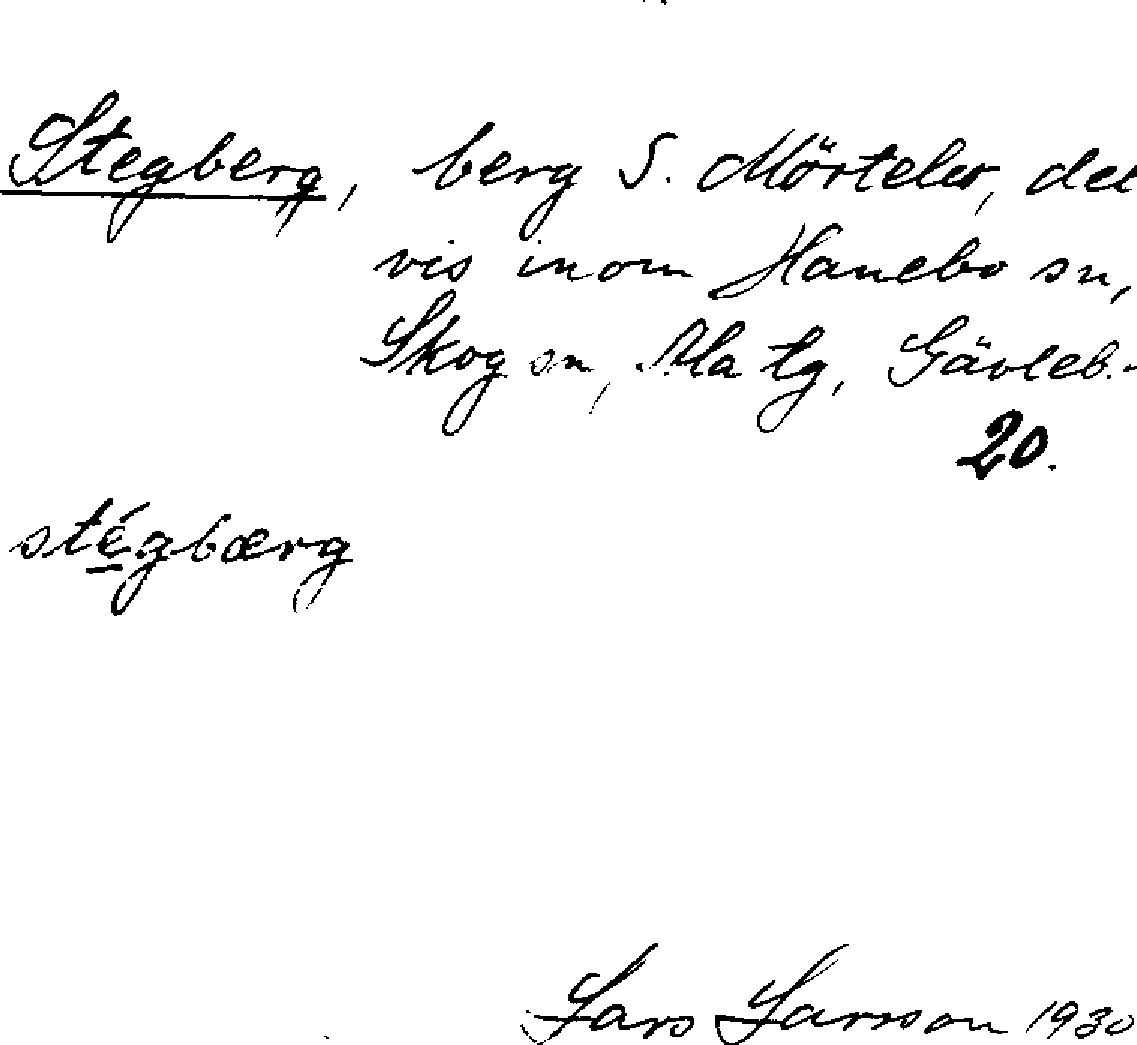 Stegberg, berg S. Mörtelås, del
vis inom Hanebo sn,
Skog sn, Ala tg, Gävleb.
20.
stégbærg
Lars Larsson 1930